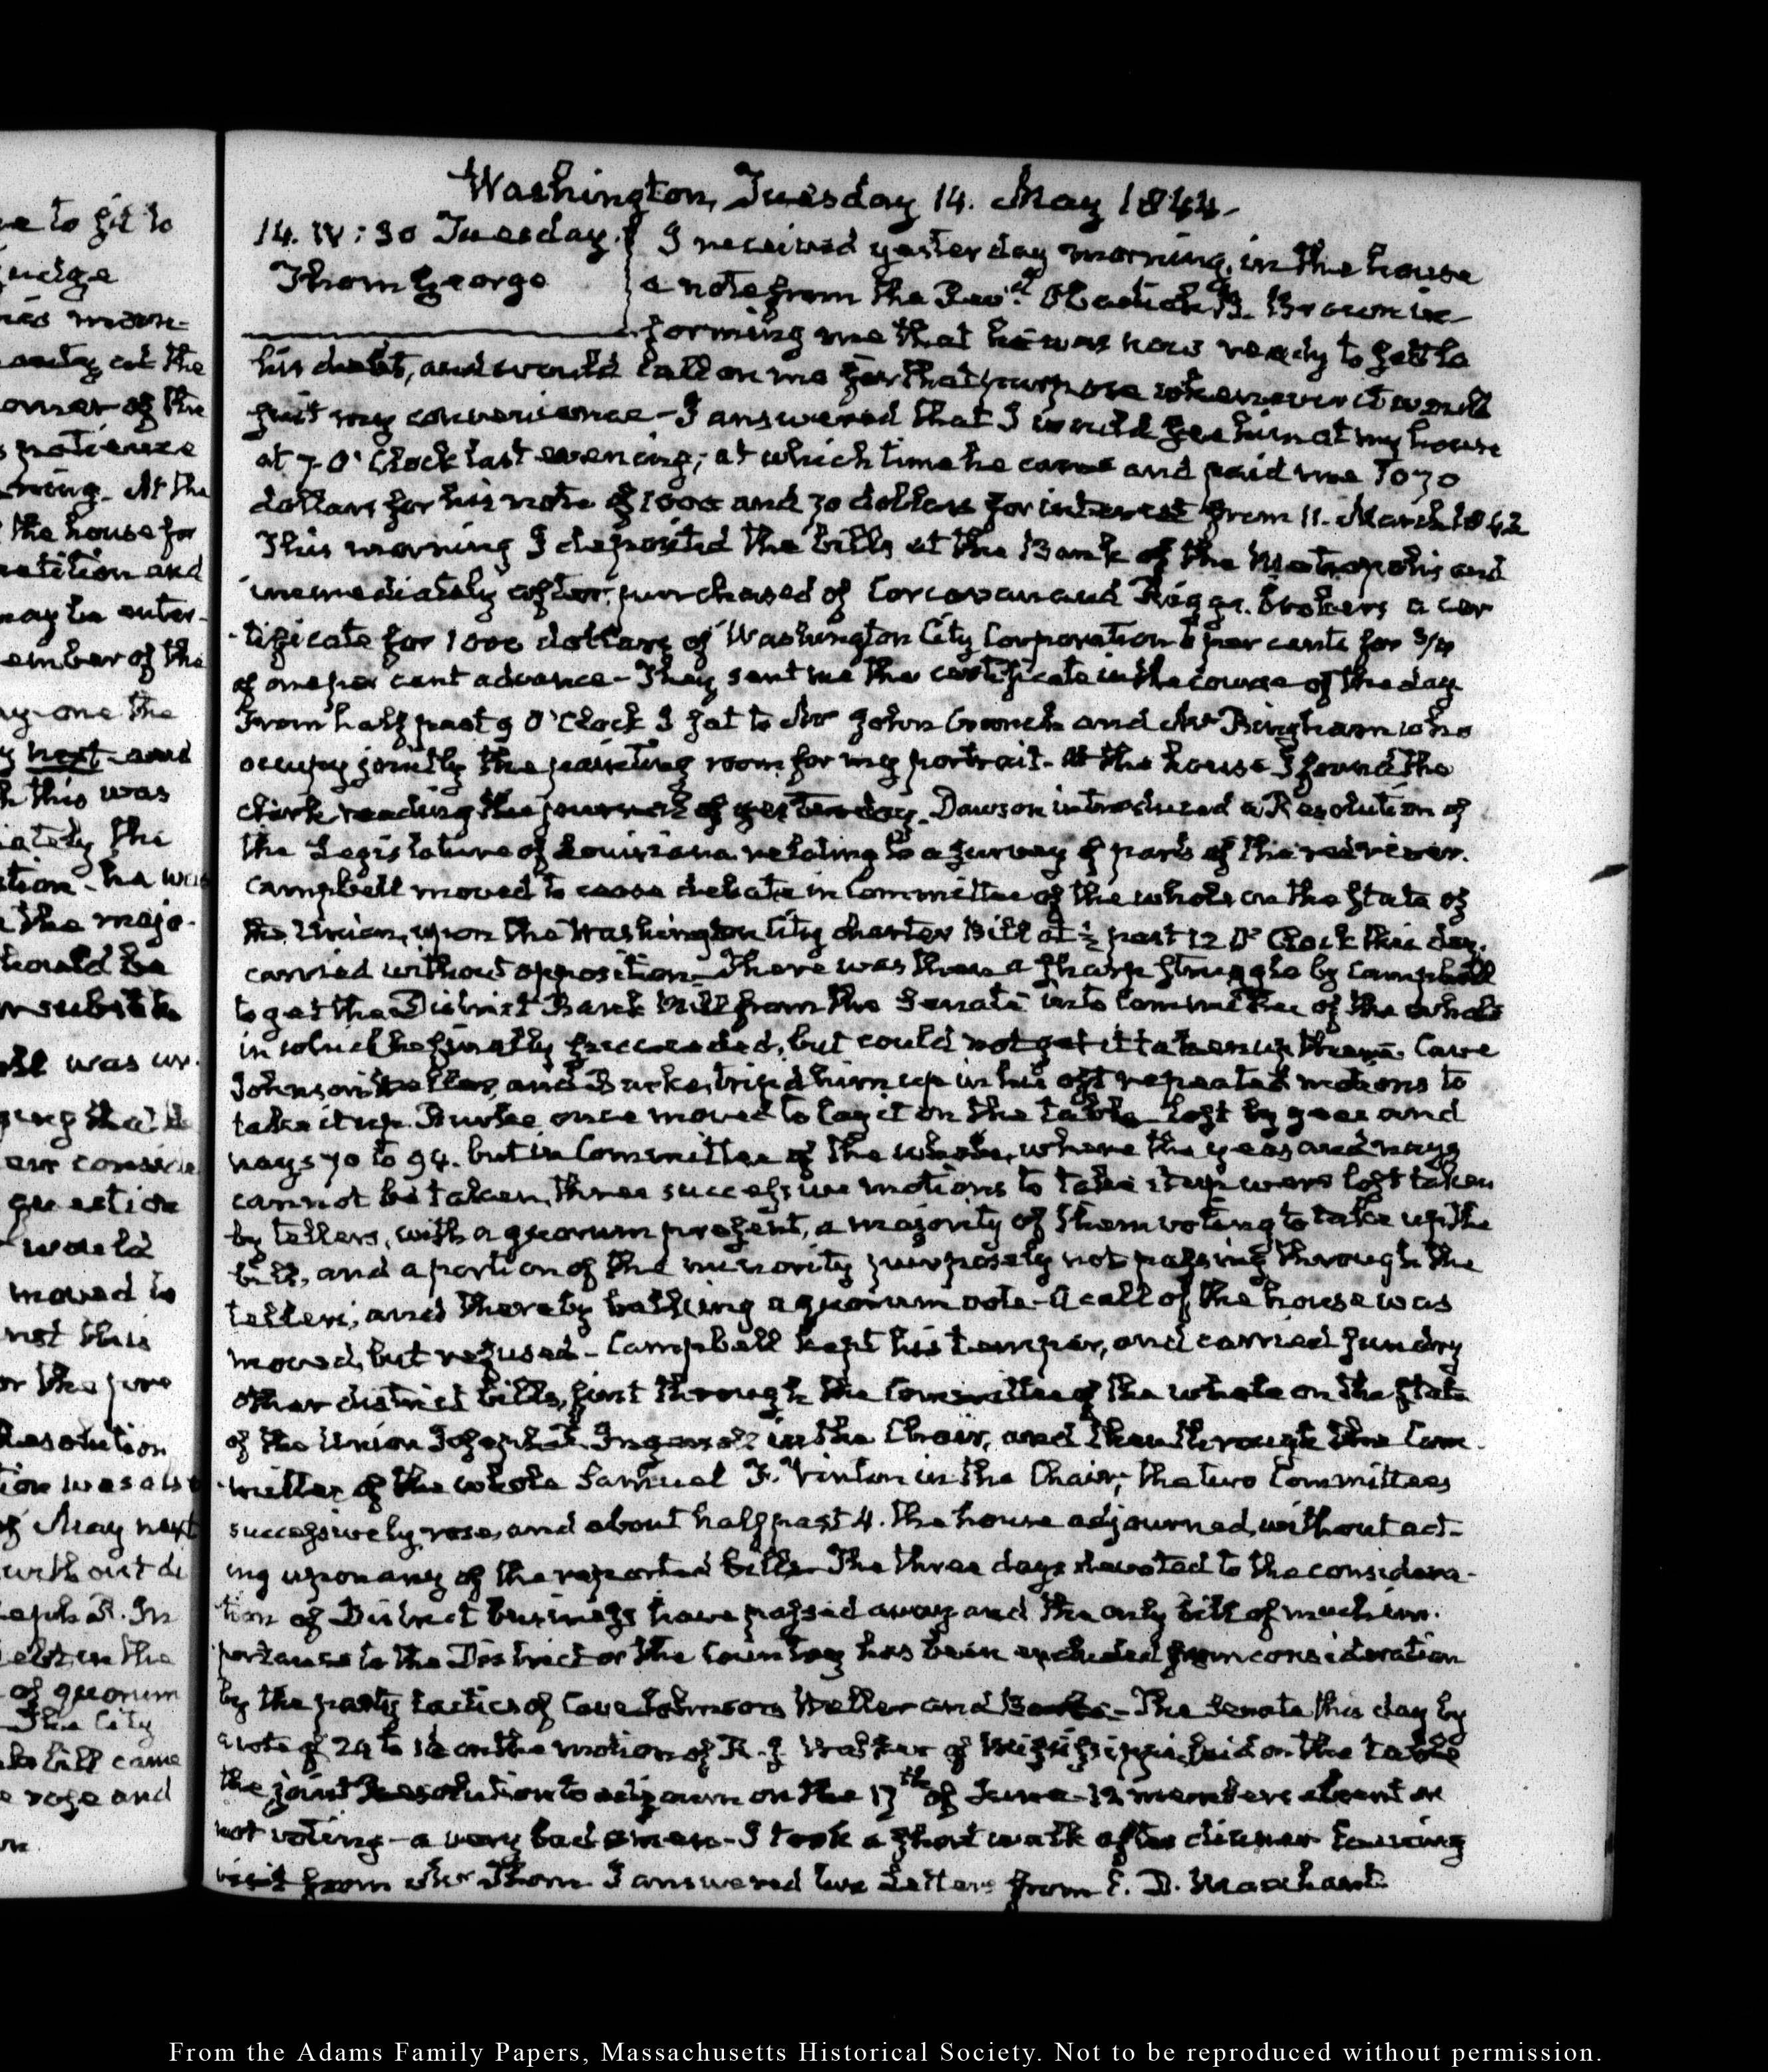 Washington, Tuesday 14. May 1844.
14. IV:30 Tuesday.
Thom George
I received yesterday morning, in the house
a note from the Revd. Obadiah B. Brown in-
forming me that he was now ready to settle
his debt, and would call on me for that purpose whenever it would
suit my convenience – I answered that I would see him at my house
at 7 O'Clock last evening; at which time he came and paid me 1070
dollars for his note of 1000 and 70 dollars for interest from 11. March 1842
This morning I deposited the bills at the Bank of the Metropolis and
immediately after, purchased of Corcoran and Riggs. brokers a cer
-tificate for 1000 dollars of Washington City Corporation 6 per cents for 3/4
of one per cent advance – They sent me the certificate in the course of the day
From half past 9 O'Clock I sat to Mr John Cranch and Mr Bingham who
occupy jointly the painting room for my portrait. At the house I found the
clerk reading the journal of yesterday. Dawson introduced a Resolution of
the Legislature of Louisiana relating to a survey of parts of the red river.
Campbell moved to cease debate in Committee of the whole on the state of
the Union, upon the Washington City charter Bill at ½ past 12 O'Clock this day.
carried without opposition – There was then a sharp struggle by Campbell
to get the District Bank Bill from the Senate into Committee of the whole
in which he finally succeeded, but could not get it taken up there. Cave
Johnson Weller, and Burke, trip'd him up in his oft repeated motions to
take it up. Burke once moved to lay it on the table – lost by yeas and
nays 70 to 94. but in Committee of the whole, where the yeas and nays
cannot be taken, three successive motions to take it up were lost taken
by tellers, with a quorum present, a majority of them voting to take up the
bill, and a portion of the minority purposely not passing through the
tellers; and thereby balking a quorum vote – A call of the house was
moved, but refused – Campbell kept his temper, and carried sundry
other district bills, first through the Committee of the whole on the state
of the Union Joseph R. Ingersoll in the Chair, and then through the Com-
-mittee of the whole Samuel F. Vinton in the Chair; the two Committees
successively rose, and about half past 4. the house adjourned, without act-
ing upon any of the reported bills – The three days devoted to the considera-
tion of District business have passed away and the only bill of much im-
portance to the District or the Country has been excluded from consideration
by the party tactics of Cave Johnson Weller and Burke. – The Senate this day by
a vote of 24 to on the motion of R. J. Walker of Mississippi, laid on the table
the joint Resolution to adjourn on the 17th of June – 12 members absent or
not voting – a very bad omen – I took a short walk after dinner
visit from Mr Thom. I answered two Letters from E. D. Marchant
ve to sit to
judge
at the
of the
patience
At the
the house for
petition and
may be enter-
ember of the
one the
next and
this was
the
he was
the majo-
should be
was un-
question
would
moved to
not this
Resolution
tion was also
of May next
without di
eph R. In
the
of quorum
The City
bill came
rose and
From the Adams Family Papers, Massachusetts Historical Society. Not to be reproduced without permission.